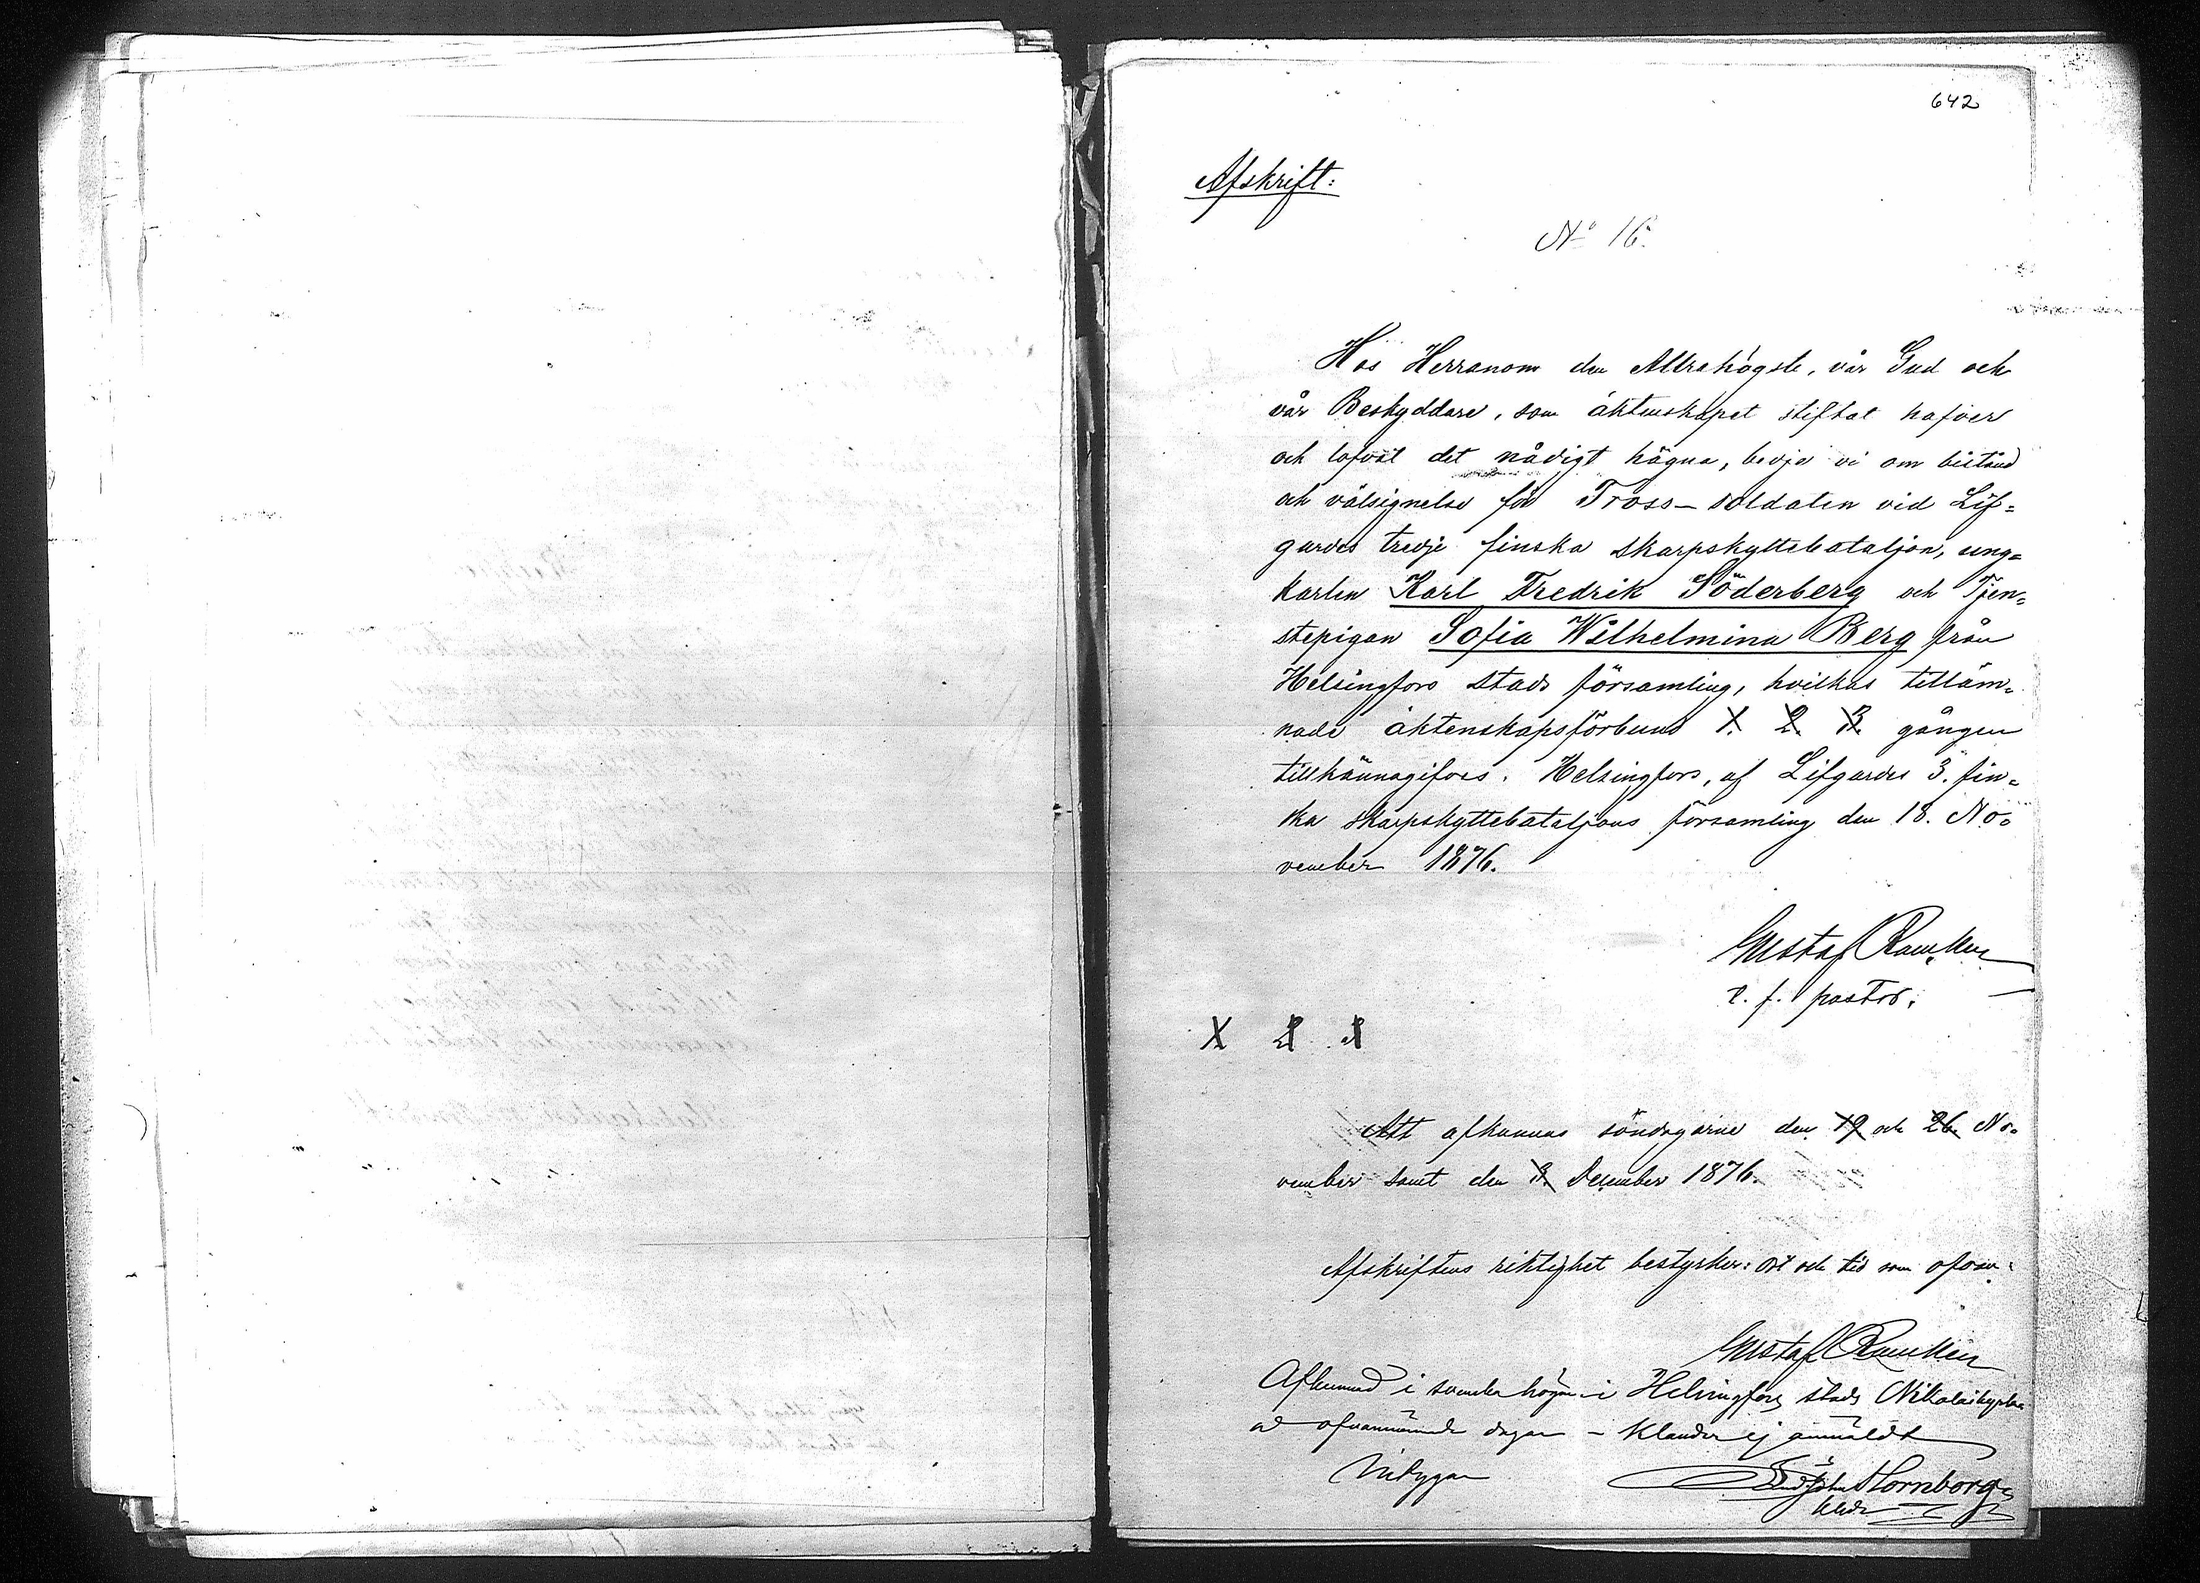 642
Afskrift:
No 16.
Hos Herranom den Allrahögste, vår Gud och
vår Beskyddare, som äktenskapet stiftat hafver
och lofvat det nådigt hägna, bedja vi om bistånd
och välsignelse för Tross-soldaten vid Lif=
gardes tredje finska skarpskyttebataljon, ung=
karlen Karl Fredrik Söderberg och Tjen=
stepigan Sofia Wilhelmina Berg från
Helsingfors stads församling, hvilkas tilläm=
nade äktenskapsförbund 1. 2. 3. gången
tillkännagifves. Helsingfors, af Lifgardes 3. fin=
ska skarpskyttebataljons församling den 18. No=
vember 1876.
Gustaf
t. f. pastor.
1 2 3
Att afkunnas söndagarne den 19 och 26. No=
vember samt den 3. December 1876.
Afskriftens riktighet bestyrker: Ort och tid som ofvan:
Gustaf
Afkunnad i svenska högm i Helsingfors stads Nikolaikyrka
å ofvannämnde dagar – klander ej anmäldt
Intygar
Hornborg